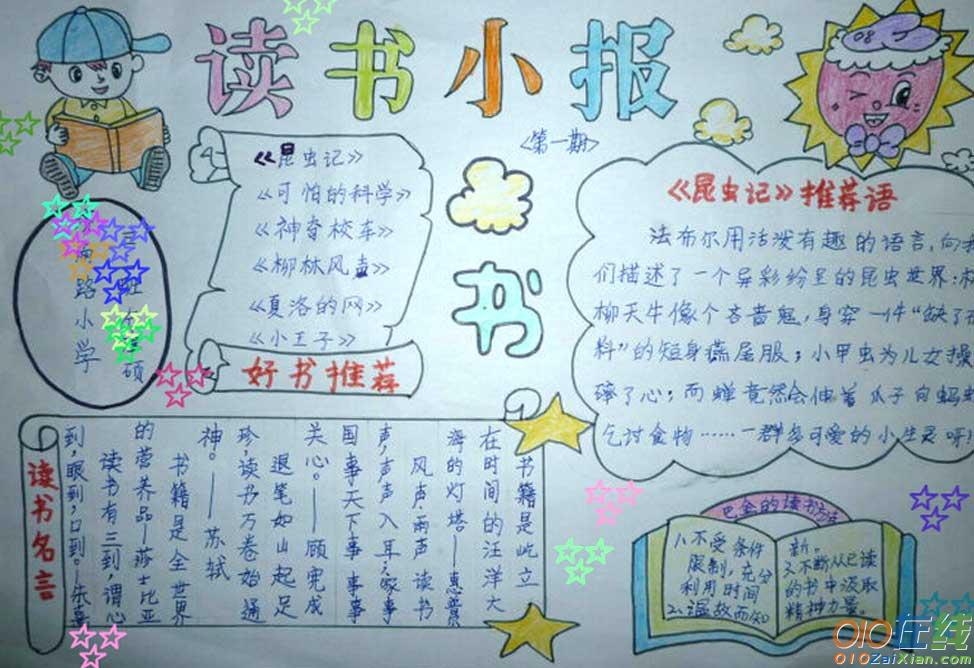 读书小报
08
<第一期>
《昆虫记》
《可怕的科学》
《神奇校车》
《柳林风声》
《夏洛的网》
《小王子》
好书推荐
书
路小学
硕
《昆虫记》推荐语
法布尔用活泼有趣的语言,向我
们描述了一个异彩纷呈的昆虫世界:
柳天牛像个吝啬鬼,身穿一件“缺了布
料”的短身燕尾服;小甲虫为儿女操
碎了心;而蝉竟然会伸着爪子向蚂蚁
乞讨食物……一群多可爱的小生灵呀
读书名言
书籍是屹立
在时间的汪洋大
海的灯塔。——惠普
风声、雨声读书
声,声声入耳;家事
国事天下事事事
关心。——顾宪成
退笔如山起足
珍,读书万卷始通
神。——苏轼
书籍是全世界
的营养品—莎士比亚
读书有三到,谓心
到,眼到,口到。—朱熹
巴金的读书方法
1、不受条件
限制,充分
利用时间
2、温故而知
新。
3、不断从已读
的书中汲取
精神力量。
010在线
010ZaiXian.com